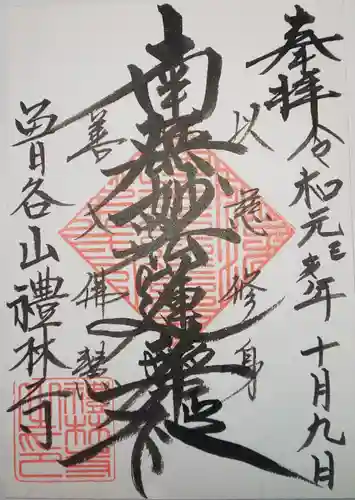 奉拝 令和元己亥年十月九日
以慈修身
南無妙法蓮華経
善入佛慧
曽谷山禮林寺